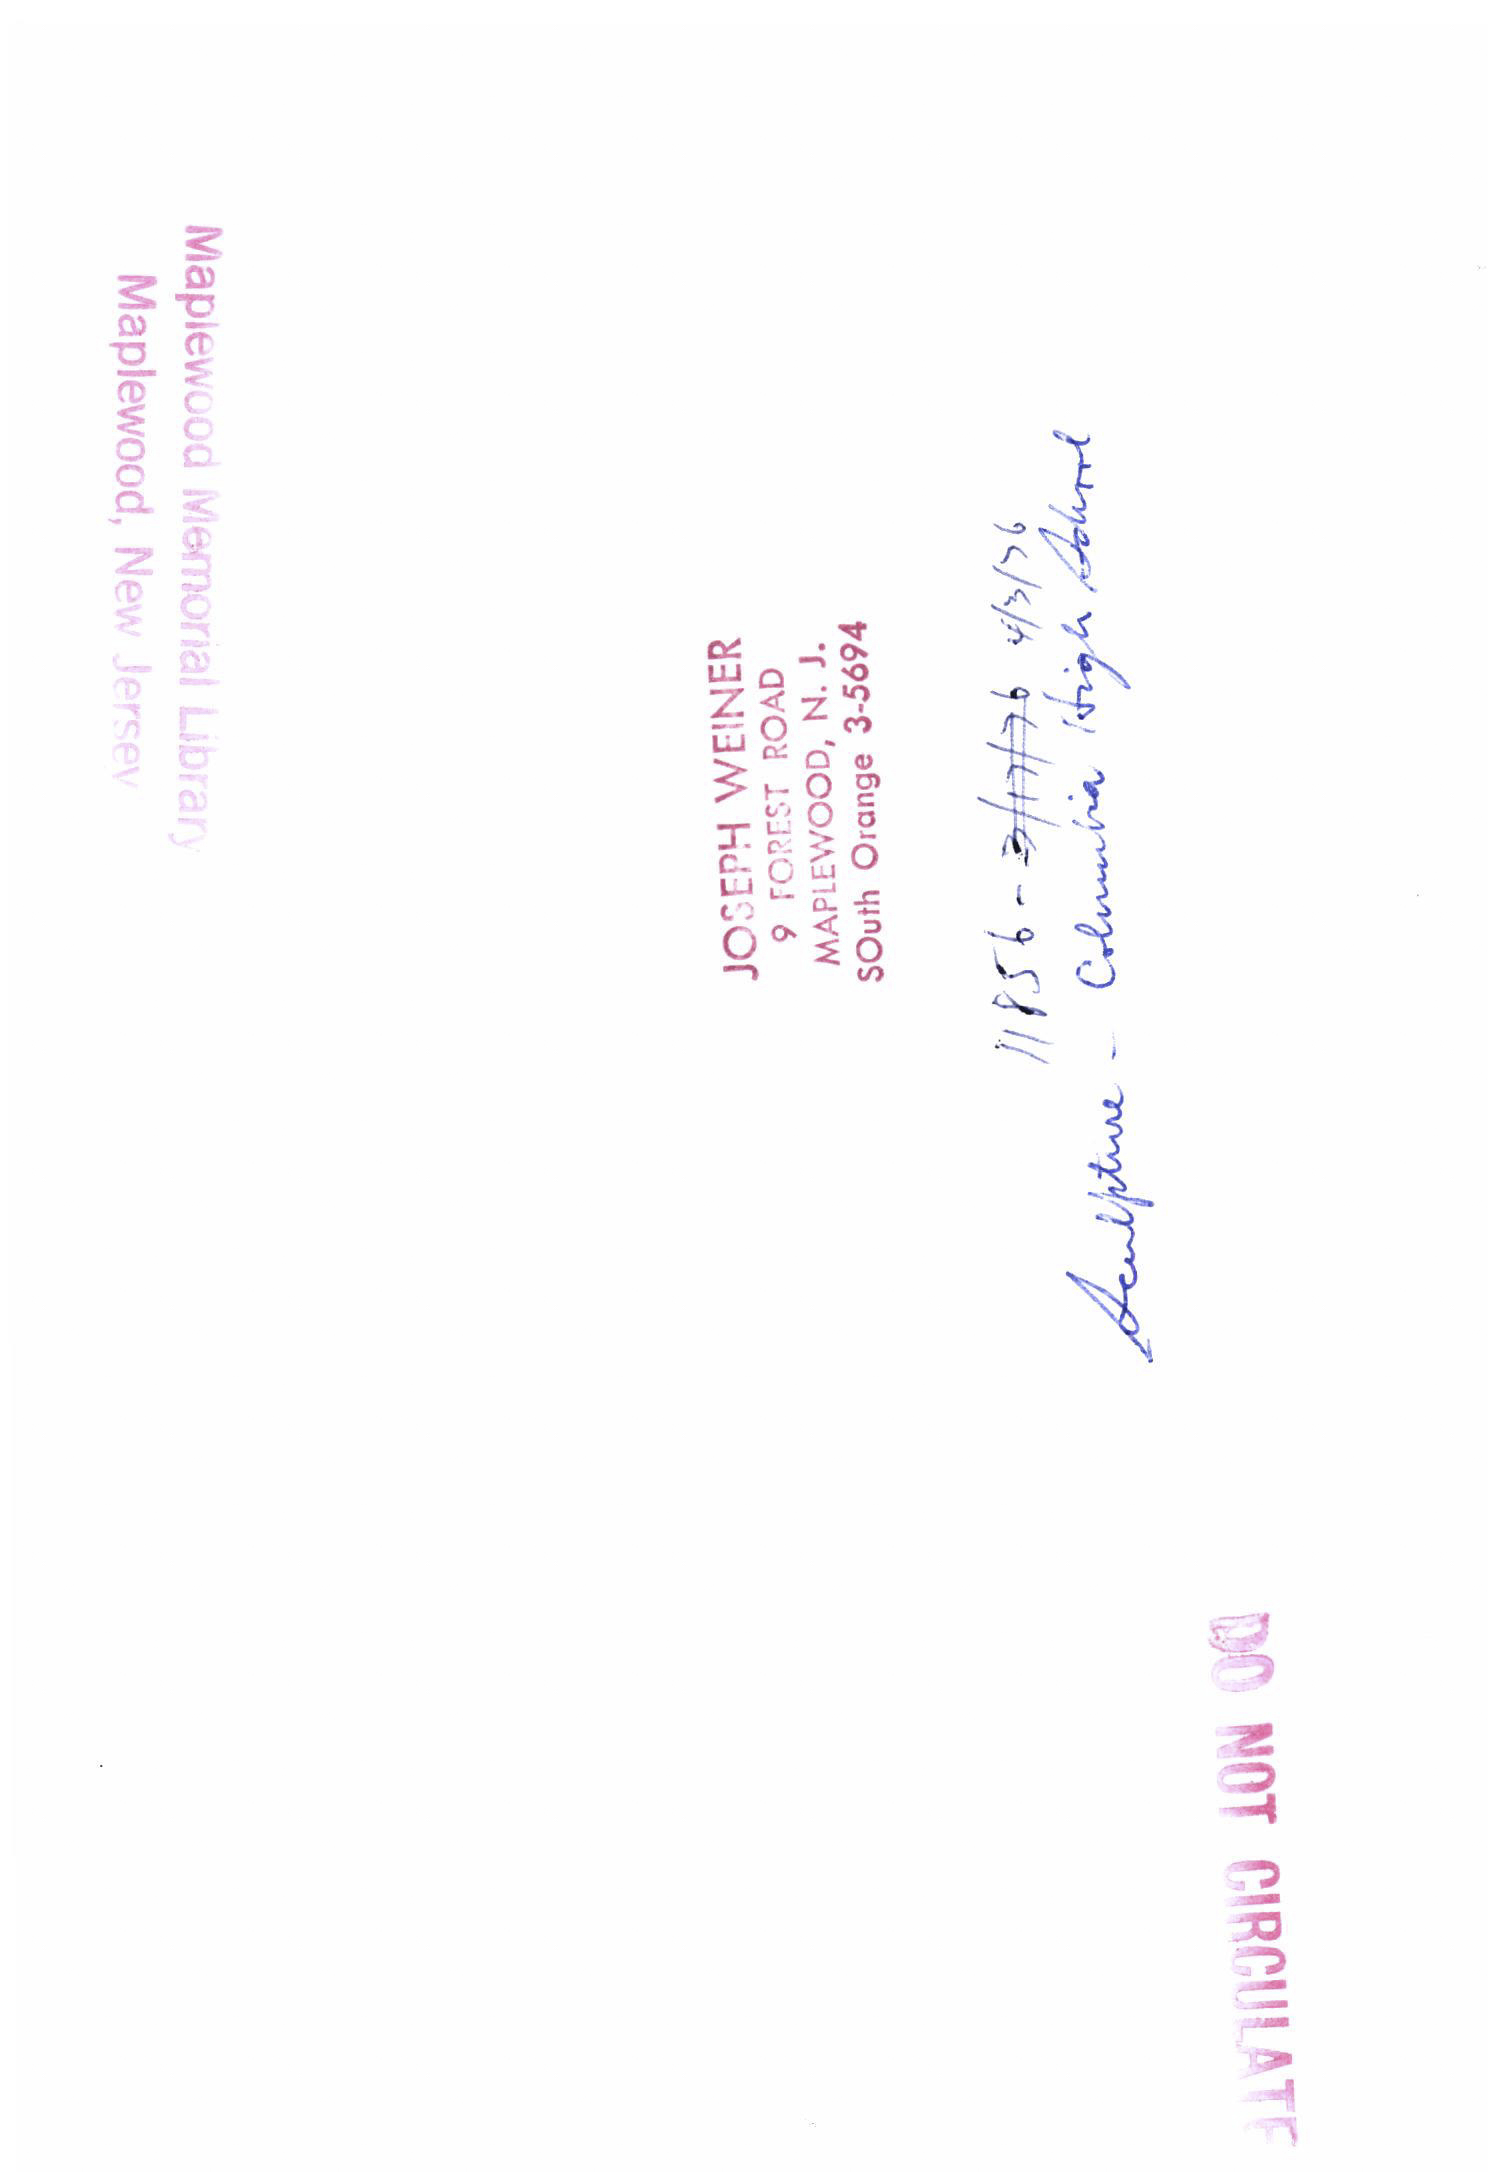 Maplewood Memorial Library
Maplewood, New Jersey
JOSEPH WEINER
9 FOREST ROAD
MAPLEWOOD, N. J.
SOuth Orange 3-5694
11856 - 3/17/76 4/3/76
Sculpture - Columbia High School
DO NOT CIRCULATE